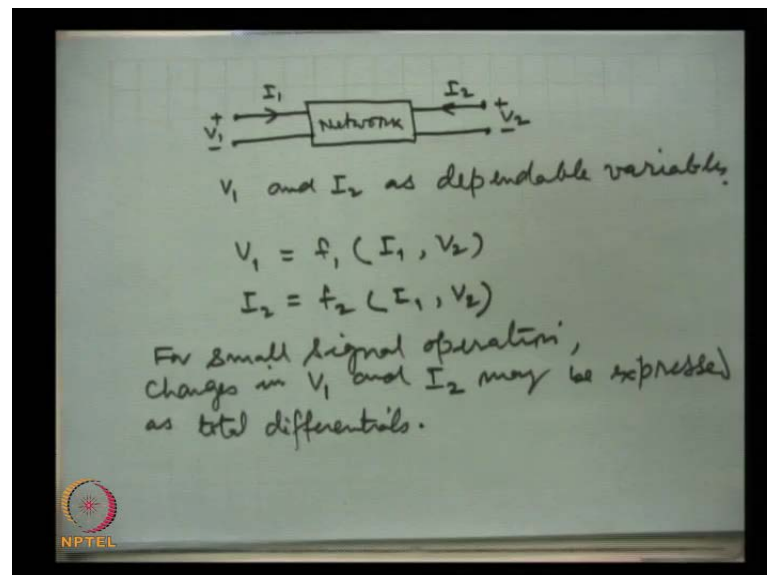 I₁ I₂
+ V₁ - Network + V₂ -
V₁ and I₂ as dependable variables.
V₁ = f₁ (I₁, V₂)
I₂ = f₂ (I₁, V₂)
For small signal operation,
changes in V₁ and I₂ may be expressed
as total differentials.
NPTEL